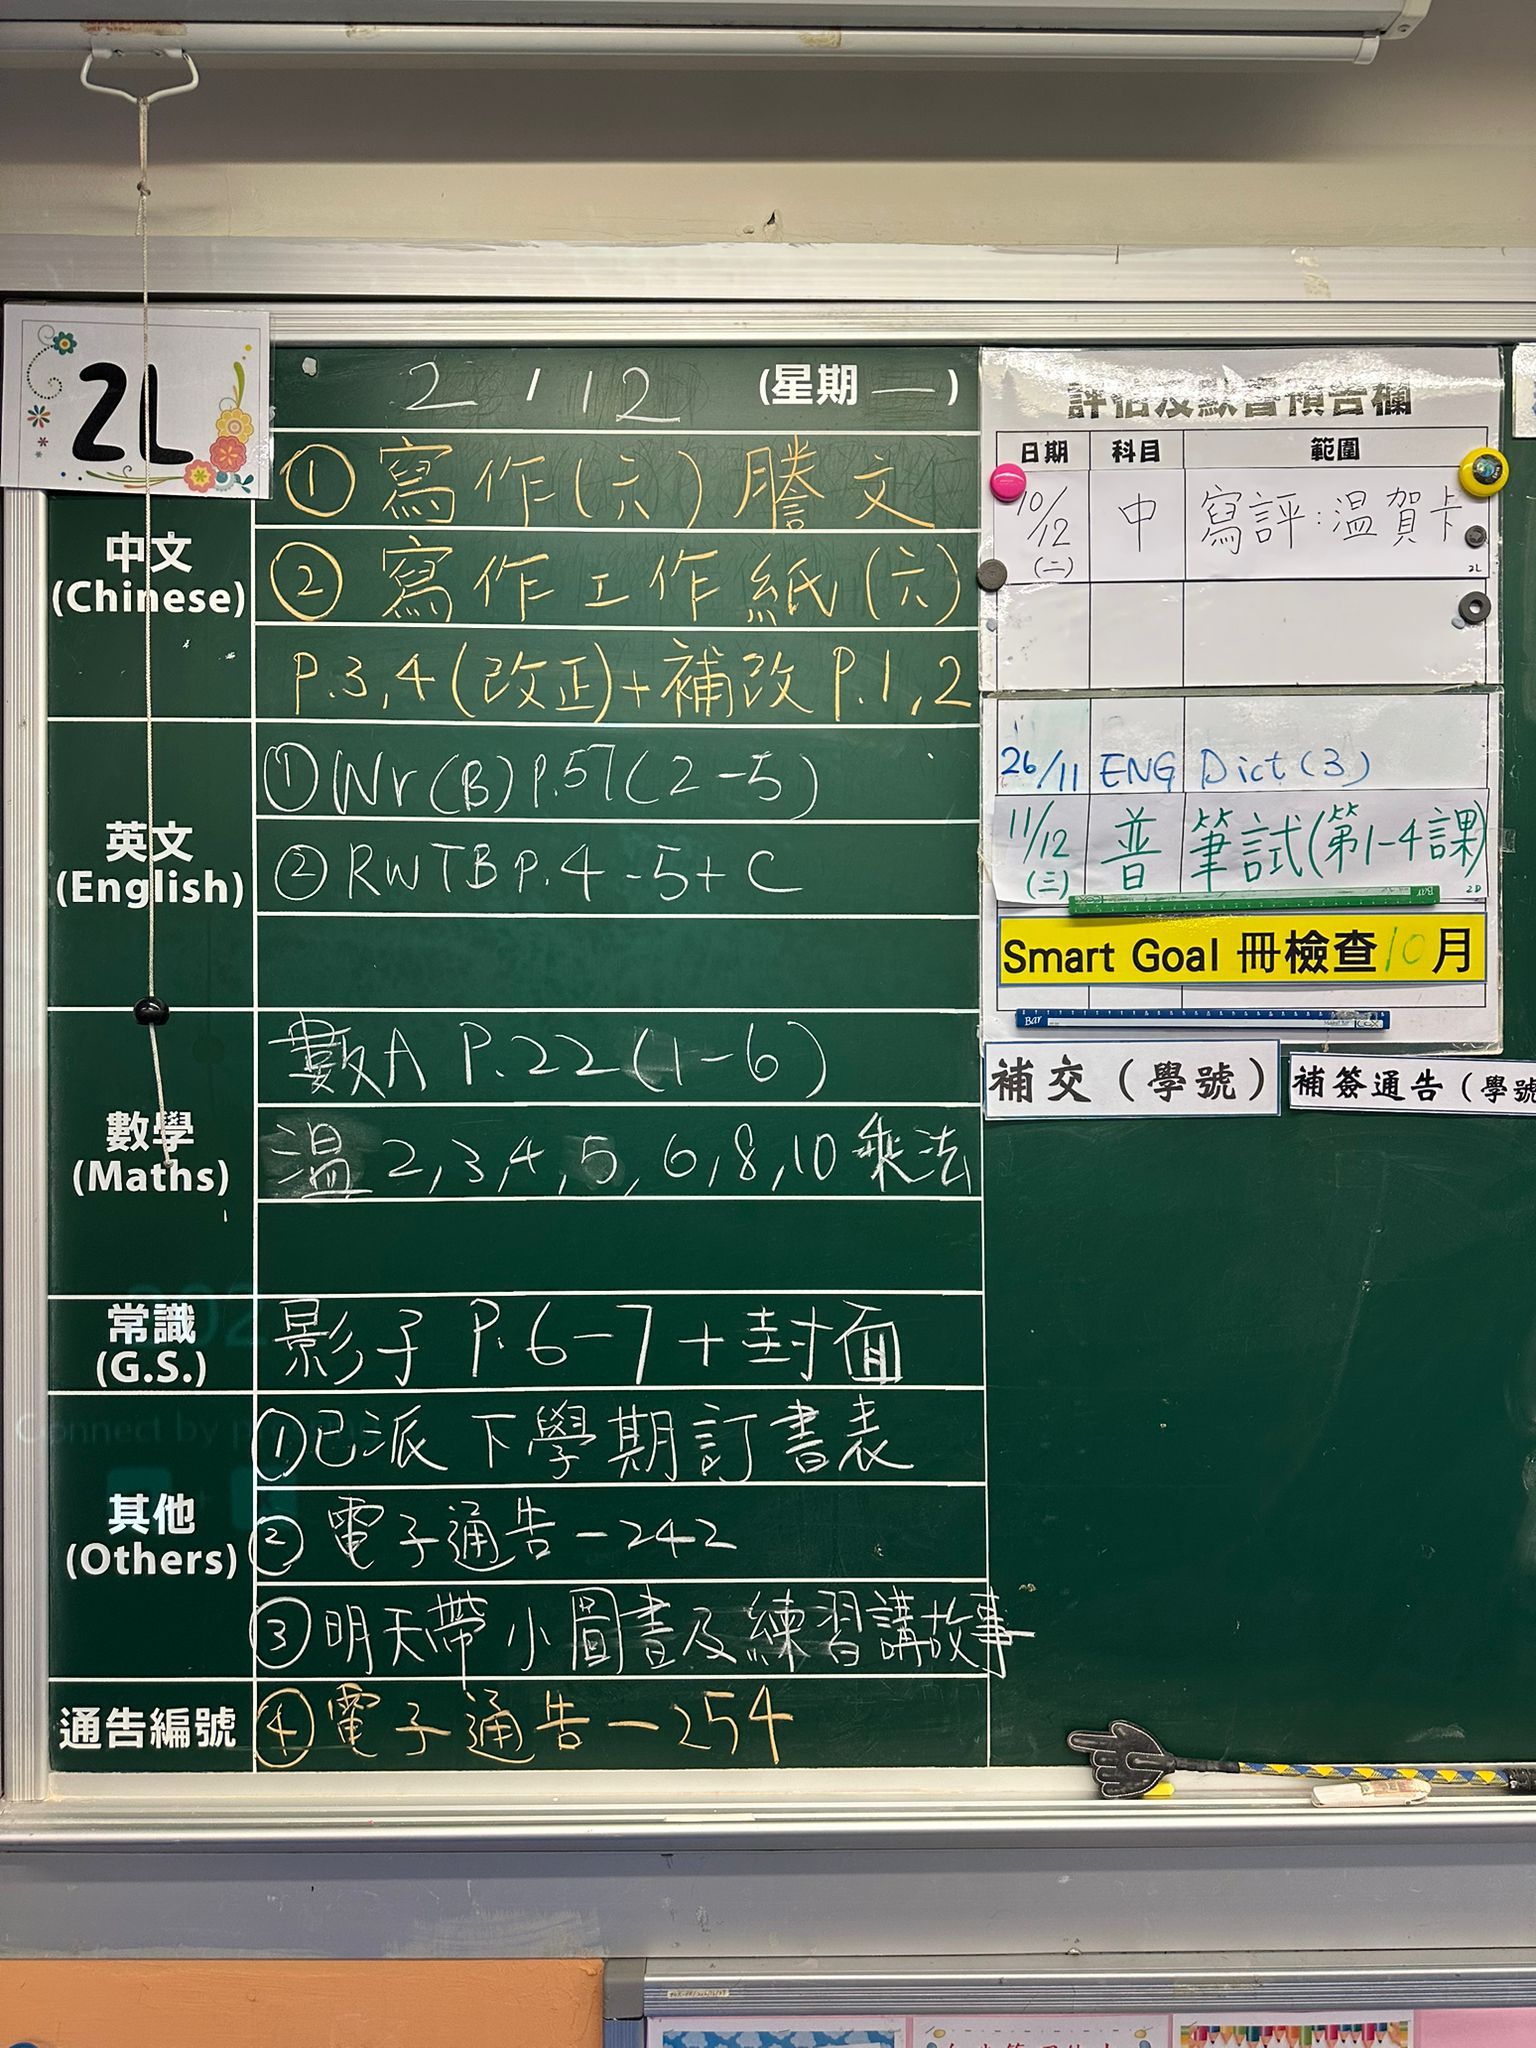 2L
2 / 12 (星期一)
中文
(Chinese)
① 寫作(六)謄文
② 寫作工作紙(六)
P.3,4(改正)+補改 P.1,2
英文
(English)
① Wr(B) P.57(2-5)
② RWTB P.4-5+C
數學
(Maths)
數A P.22(1-6)
溫 2,3,4,5,6,8,10 乘法
常識
(G.S.)
影子 P.6-7+封面
其他
(Others)
① 已派下學期訂書表
② 電子通告-242
③ 明天帶小圖書及練習講故事
通告編號
④ 電子通告-254
評估及默書預告欄
日期 科目 範圍
10/12 (二) 中 寫評:溫賀卡
2L
26/11 ENG Dict(3)
11/12 (三) 普 筆試(第1-4課)
2D
Smart Goal 冊檢查10月
補交(學號)
補簽通告(學號